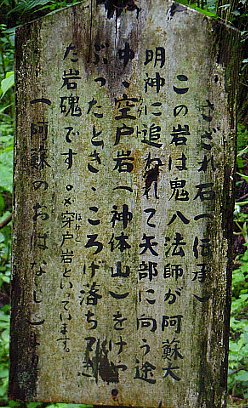 さざれ石（伝承）
この岩は鬼八法師が阿蘇大
明神に追われて矢部に向う途
中、空戸岩（神体山）をけや
ぶったとき、ころげ落ちた
た岩魂です。〆穿戸岩といっています。
（阿蘇のおはなし）より